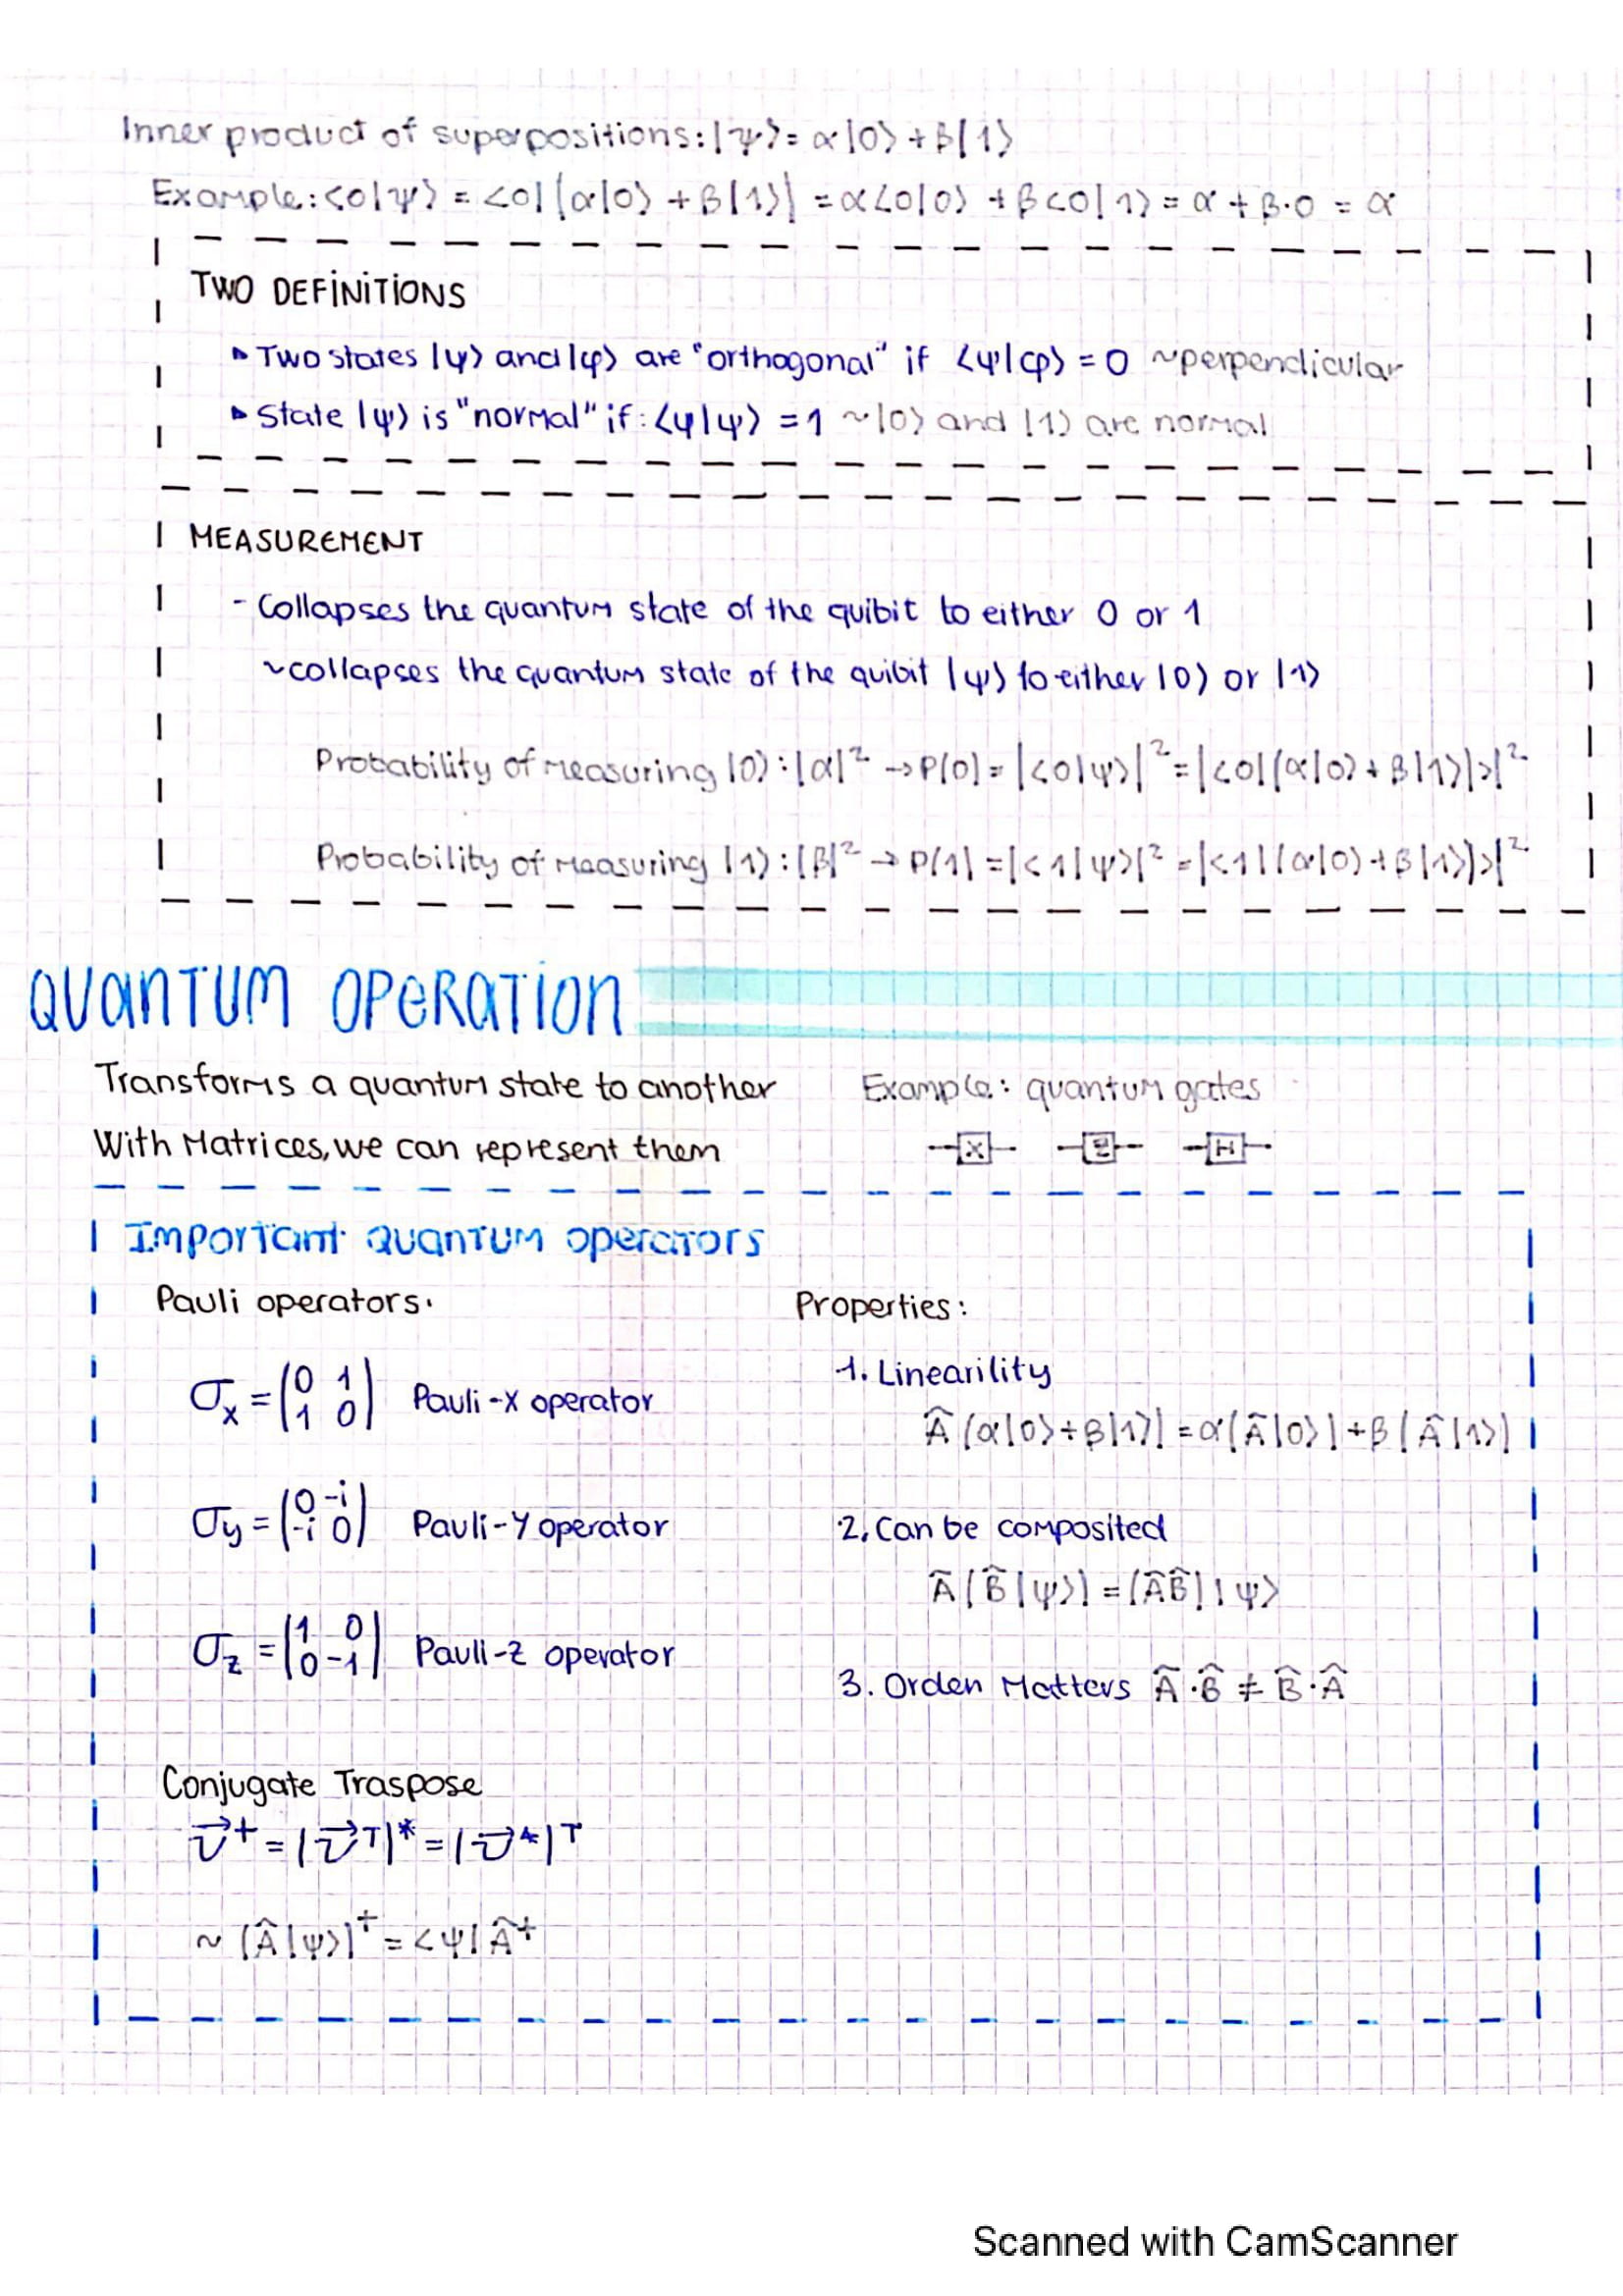 Inner product of superpositions: |ψ⟩= α|0⟩ + β|1⟩
Example: <0|ψ⟩ = <0|(α|0⟩ + β|1⟩) = α<0|0⟩ + β<0|1⟩ = α + β·0 = α
TWO DEFINITIONS
▸ Two states |ψ⟩ and |φ⟩ are "orthogonal" if ⟨ψ|φ⟩ = 0 ~perpendicular
▸ State |ψ⟩ is "normal" if: ⟨ψ|ψ⟩ = 1 ~|0⟩ and |1⟩ are normal
MEASUREMENT
- Collapses the quantum state of the quibit to either 0 or 1
~collapses the quantum state of the quibit |ψ⟩ to either |0⟩ or |1⟩
Probability of measuring |0⟩: |α|² → P(0) = |<0|ψ>|² = |<0|(α|0⟩ + β|1⟩)>|²
Probability of measuring |1⟩: |β|² → P(1) = |<1|ψ>|² = |<1|(α|0⟩ + β|1⟩)>|²
QUANTUM OPERATION
Transforms a quantum state to another Example: quantum gates
With Matrices, we can represent them X Z H
Important quantum operators
Pauli operators. Properties:
1. Linearility
σx = (0 1 Pauli-X operator
1 0)
Â(α|0⟩+β|1⟩) = α(Â|0⟩) + β(Â|1⟩)
σy = (0 -i Pauli-Y operator
-i 0)
2. Can be composited
Â(B̂|ψ⟩) = (ÂB̂)|ψ⟩
σz = (1 0 Pauli-Z operator
0 -1)
3. Orden Matters Â·B̂ ≠ B̂·Â
Conjugate Traspose
v⃗⁺ = (v⃗ᵀ)* = (v⃗*)ᵀ
~ (Â|ψ⟩)⁺ = <ψ|Â⁺
Scanned with CamScanner